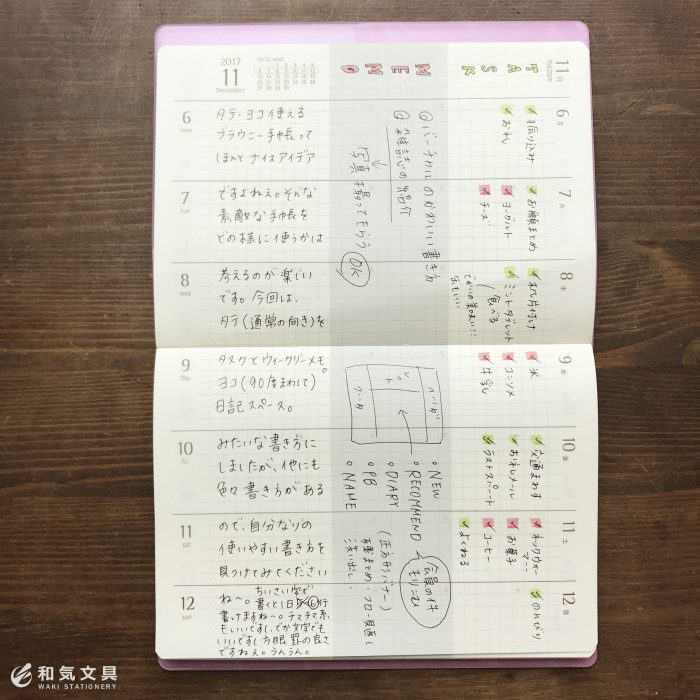 2017
11
November
45/52 week
6
mon
タテ、ヨコ使える
ブラウニー手帳って
ほんとナイスアイデア
7
tue
ですよねぇ。そんな
素敵な手帳を
どの様に使うかは
8
wed
考えるのが楽しい
です。今回は、
タテ(通常の向き)を
9
thu
タスクとウィークリーメモ。
ヨコ(90度まわして)
日記スペース。
10
fri
みたいな書き方に
しましたが、他にも
色々書き方がある
11
sat
ので、自分なりの
使いやすい書き方を
見つけてみてください
12
sun
ね〜。ちいさい字で
書くと1日 行
書けますね〜。チマチマ系
もいいですし、でか文字でも
いいですし方眼罫の良さ
ですねぇ。うんうん。
11月
平成29年
TASK
MEMO
6月
振り込み
お礼
7火
お願まとめ
ヨーグルト
チーズ
8水
ミントタブレット
食べる
9木
米
コンソメ
牛乳
10金
交通まわす
お礼メール
ラストスパート
11土
ネックウォーマー
お菓子
コーヒー
よくねる
12日
のんびり
バーチカルのかわいい書き方
雑誌の紹介
写真撮ってもらう
OK
NEW
RECOMMEND
DIARY
PB
NAME
(正方形バナー)
会員の件
もりこむ
和気文具
WAKI STATIONERY